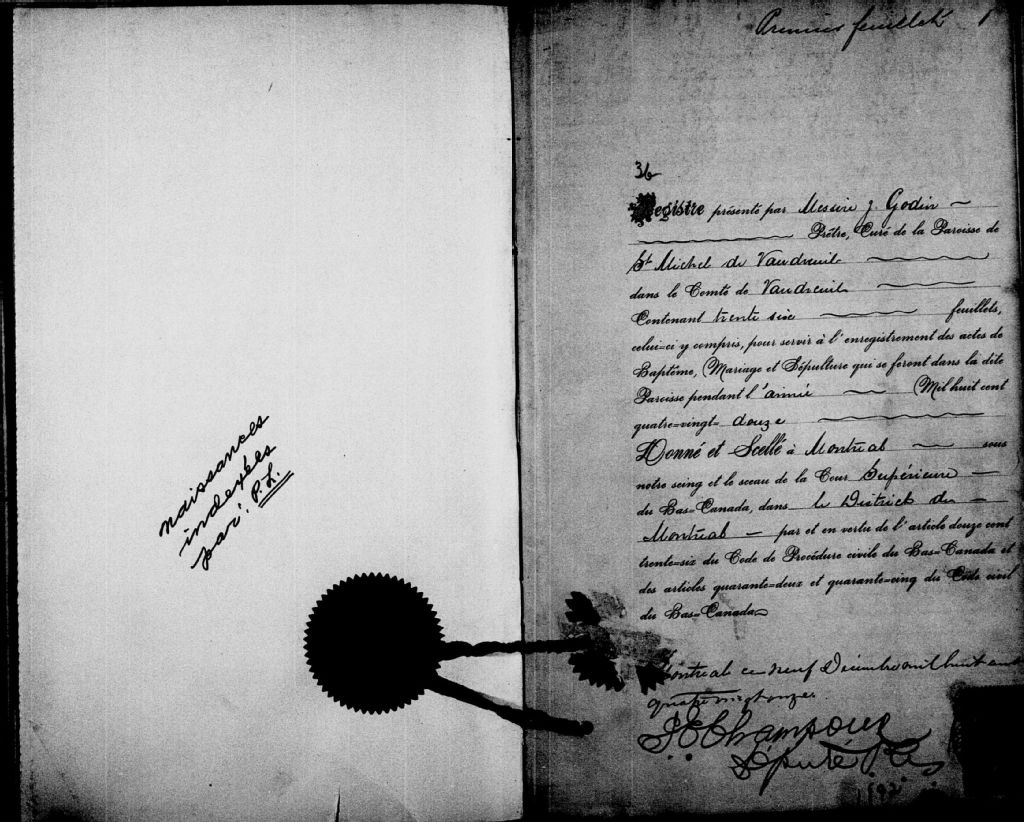 naissances
indexées
par: P.L.
Premier feuillet 1
36
Registre présenté par Messire J. Godin
Prêtre, Curé de la Paroisse de
St Michel de Vaudreuil
dans le Comté de Vaudreuil
Contenant trente six feuillets,
celui-ci y compris, pour servir à l'enregistrement des actes de
Baptême, Mariage et Sépulture qui se feront dans la dite
Paroisse pendant l'année Mil huit cent
quatre-vingt- douze
Donné et Scellé à Montréal sous
notre seing et le sceau de la Cour Supérieure
du Bas-Canada, dans le District de
Montréal par et en vertu de l'article douze cent
trente-six du Code de Procédure civile du Bas-Canada et
des articles quarante-deux et quarante-cinq du Code civil
du Bas-Canada
Montréal ce neuf Décembre mil huit cent
quatre vingt onze.
Champoux
Député P.C.S.
1892